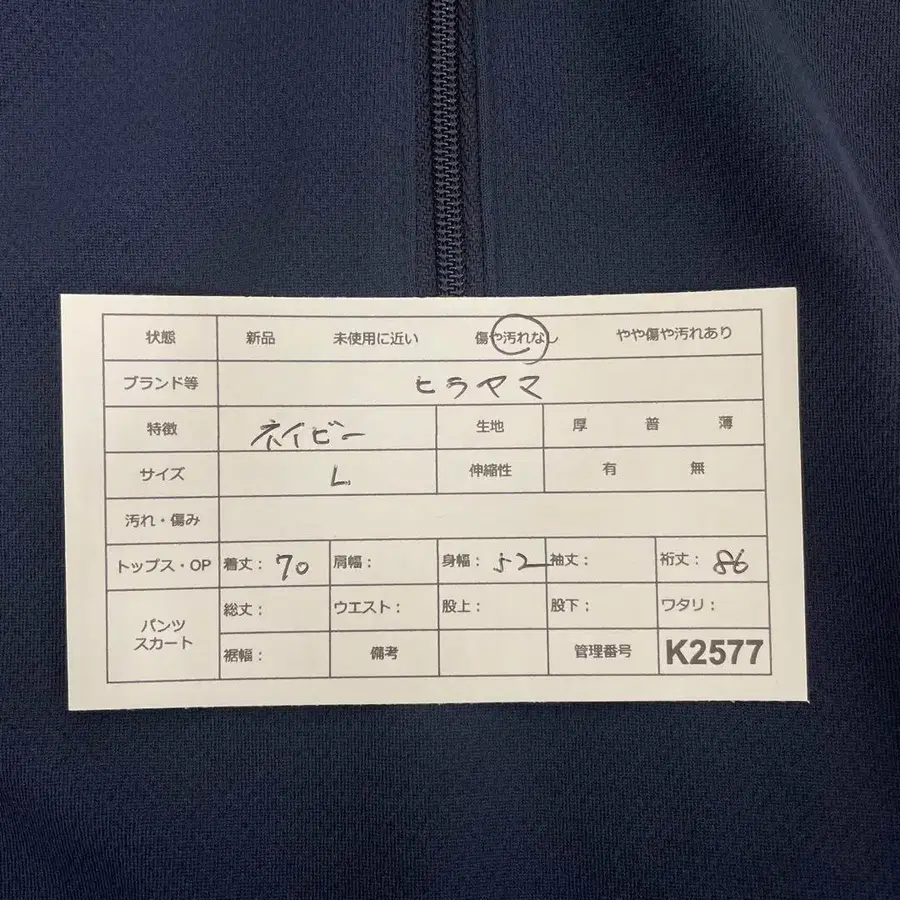 状態 新品 未使用に近い 傷や汚れなし やや傷や汚れあり
ブランド等 ヒラヤマ
特徴 ネイビー 生地 厚 普 薄
サイズ L 伸縮性 有 無
汚れ・傷み
トップス・OP 着丈: 70 肩幅: 身幅: 52 袖丈: 裄丈: 86
パンツ スカート 総丈: ウエスト: 股上: 股下: ワタリ:
裾幅: 備考 管理番号 K2577